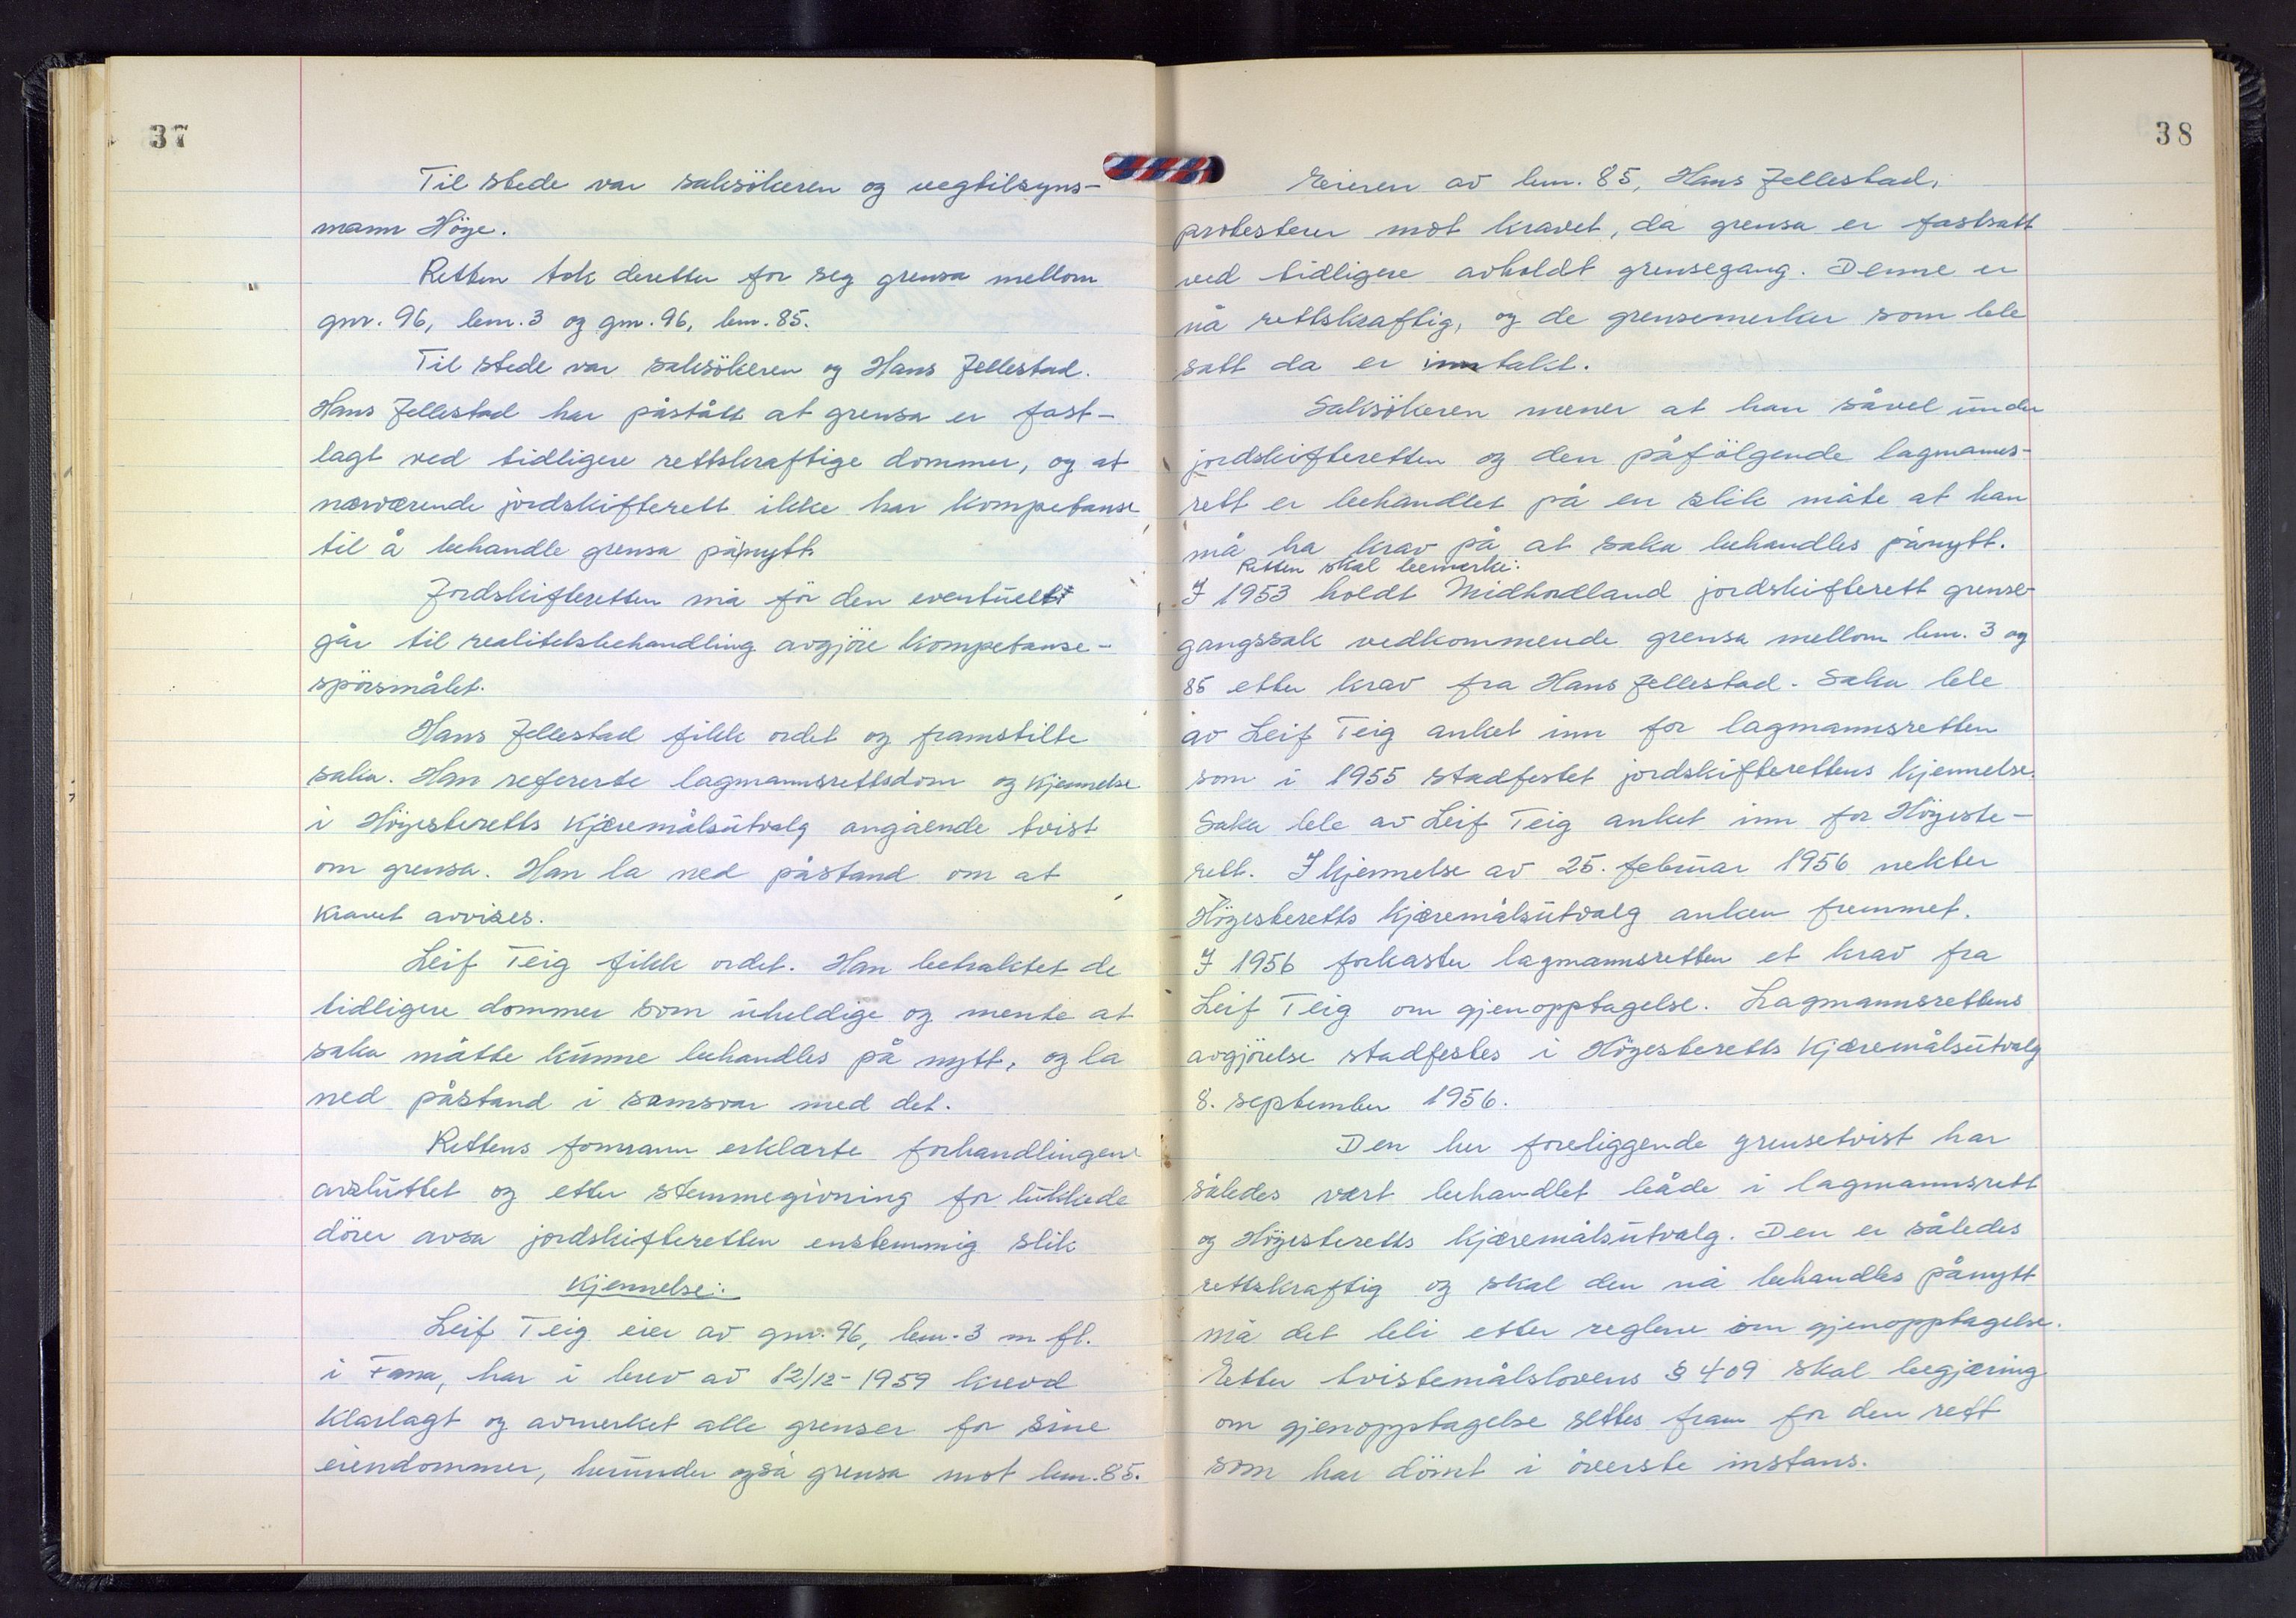 37
Til stede var saksökeren og vegtilsyns-
mann Höye.
Retten tok deretter for seg grensa mellom
gnr. 96, bnr. 3 og gnr. 96, bnr. 85.
Til stede var saksökeren og Hans Jellestad.
Hans Jellestad har påstått at grensa er fast-
lagt ved tidligere rettskraftige dommer, og at
nærværende jordskifterett ikke har kompetanse
til å behandle grensa på nytt.
Jordskifteretten må för den eventuelt
går til realitetsbehandling avgjöre kompetanse-
spörsmålet.
Hans Jellestad fikk ordet og framstilte
saka. Han refererte lagmannsrettsdom og kjennelse
i Höyesteretts Kjæremålsutvalg angående tvist
om grensa. Han la ned påstand om at
kravet avvises.
Leif Teig fikk ordet. Han betraktet de
tidligere dommer som uheldige og mente at
saka måtte kunne behandles på nytt, og la
ned påstand i samsvar med det.
Rettens formann erklærte forhandlingene
avsluttet og etter stemmegivning for lukkede
dörer avsa jordskifteretten enstemmig slik
Kjennelse:
Leif Teig eier av gnr. 96, bnr. 3 m fl.
i Fana, har i brev av 12/12-1959 krevd
klarlagt og avmerket alle grenser for sine
eiendommer, herunder også grensa mot bnr. 85.
38
Eieren av bnr. 85, Hans Jellestad,
protesterer mot kravet, da grensa er fastsatt
ved tidligere avholdt grensegang. Denne er
nå rettskraftig, og de grensemerker som ble
satt da er inntakt.
Saksökeren mener at han såvel under
jordskifteretten og den påfölgende lagmanns-
rett er behandlet på en slik måte at han
må ha krav på at saka behandles pånytt.
Retten skal bemerke:
I 1953 holdt Midhordland jordskifterett grense-
gangssak vedkommende grensa mellom bnr. 3 og
85 etter krav fra Hans Jellestad. Saka ble
av Leif Teig anket inn for lagmannsretten
som i 1955 stadfestet jordskifterettens kjennelse.
Saka ble av Leif Teig anket inn for Höyeste-
rett. I kjennelse av 25. februar 1956 nekter
Höyesteretts kjæremålsutvalg anken fremmet.
I 1956 forkaster lagmannsretten et krav fra
Leif Teig om gjenopptagelse. Lagmannsrettens
avgjörelse stadfestes i Höyesteretts Kjæremålsutvalg
8. september 1956.
Den her foreliggende grensetvist har
således vært behandlet både i lagmannsrett
og Höyesteretts kjæremålsutvalg. Den er således
rettskraftig og skal den nå behandles pånytt
må det bli etter reglene om gjenopptagelse.
Etter tvistemålslovens § 409 skal begjæring
om gjenopptagelse settes fram for den rett
som har dömt i överste instans.